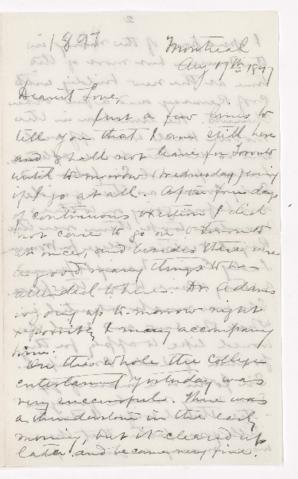 1897
Montreal
Aug 17th 1897
Dearest Love,
Just a few lines to
tell you that I am still here
and shall not leave for Toronto
until to-morrow, Wednesday, evening
if I go at all. After four days
of continuous I did
not care to go on to Toronto
at once, and besides there were
a good many things to be
attended to here. Dr Adams
is going up to-morrow night
& possibly I may accompany
him.
On the whole the College
entertainment yesterday was
very successful. There was
a thunderstorm in the early
morning, but it cleared up
later, and became very fine.